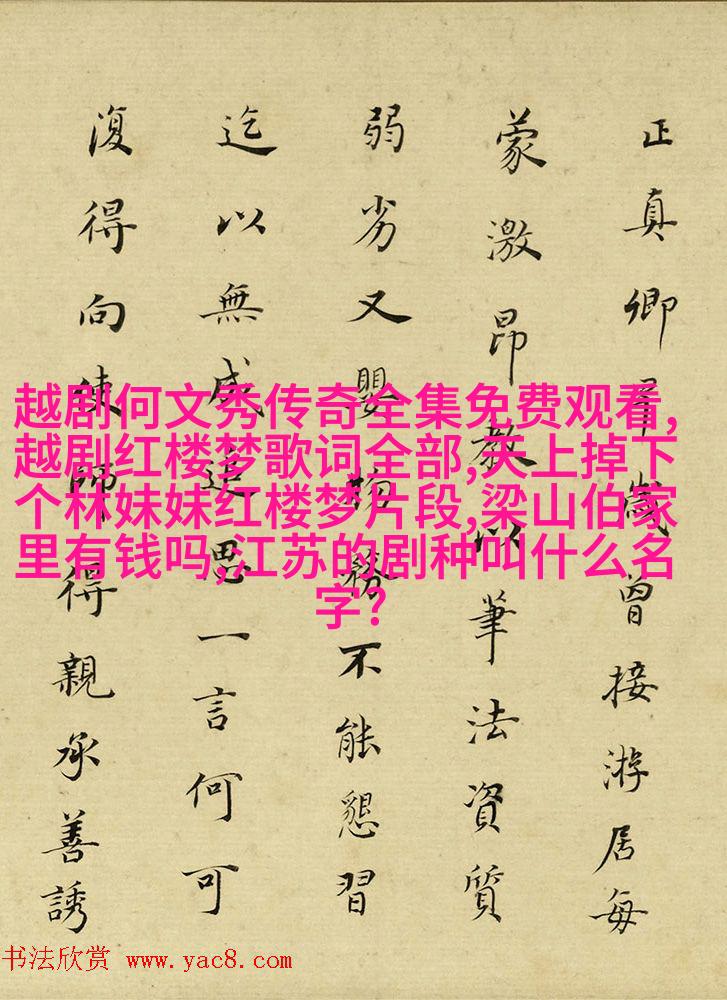 正真卿早歲曾接游居每
蒙激昂教以筆法資質
弱劣又嬰物務不能懇習
迄以無成追思一言何可
復得向使師得親承善誘
越剧何文秀传奇全集免费观看,
越剧红楼梦歌词全部,天上掉下
个林妹妹红楼梦片段,梁山伯家
里有钱吗,江苏的剧种叫什么名
字?
书法欣赏 www.yac8.com